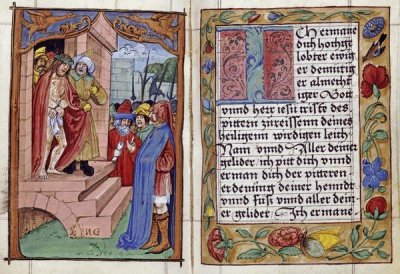 ENG
Ich ermane
dich hochge
lobter ewig
er demütig
er almechti
ger Gott
vnnd herr iesu criste des
pittren zureissenn deines
heiligenn wirdigen leich
Nam vnnd Aller deiner
gelider ich pitt dich vnnd
er man dich der pitteren
er denung deiner hendt
vnnd füss vnnd aller dein
er gelider Ich ermane